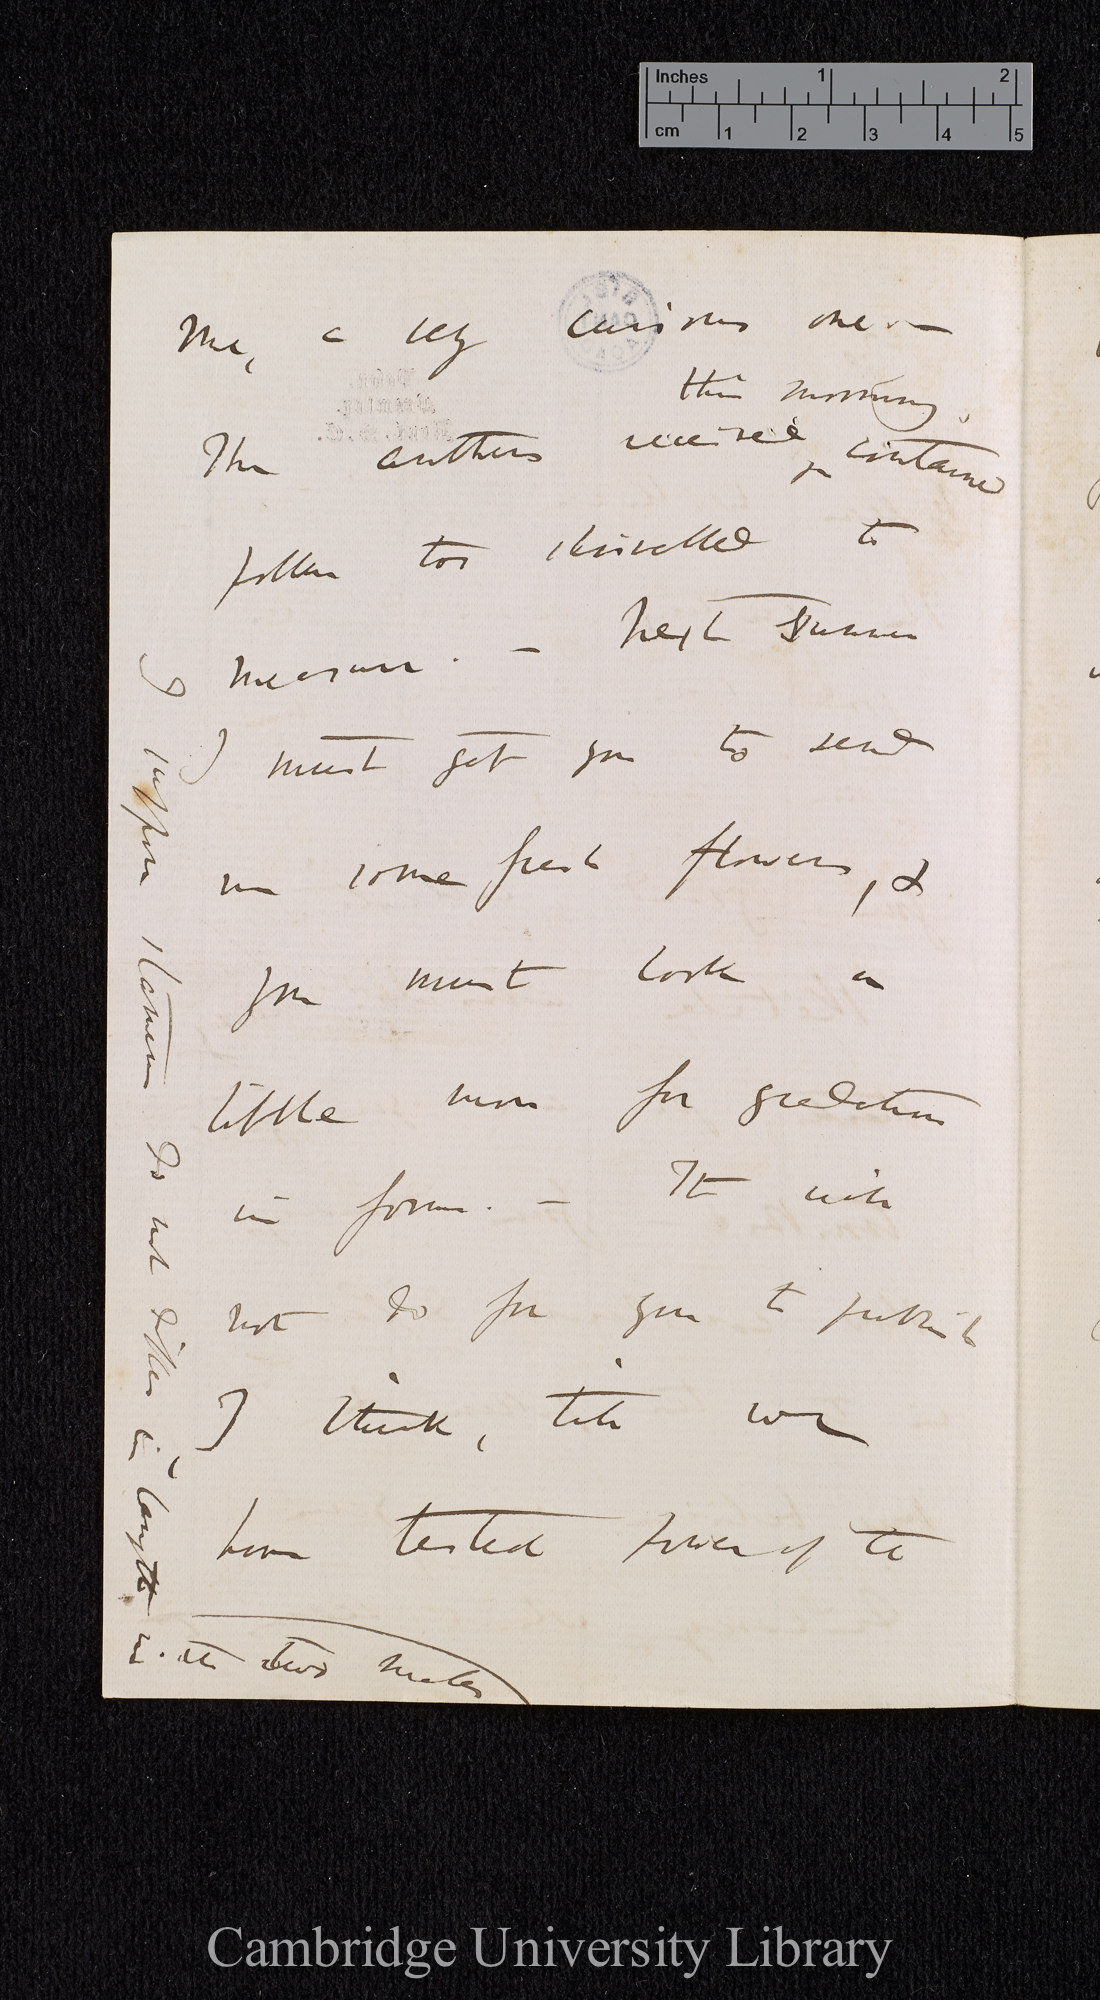 Inches 1 2
cm 1 2 3 4 5
me, a very curious one.—
this morning,
The anthers received, contained
pollen too shrivelled to
measure.— Next summer
I must get you to send
me some fresh flowers, &
you must look a
little more for gradations
in form.— It will
not do for you to publish
I think, till we
have tested power of the
I suppose stamens do not differ in length
with two males
Cambridge University Library